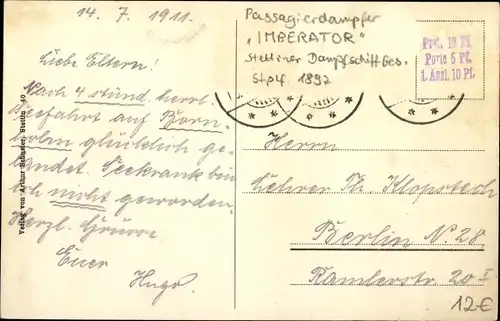 14. 7. 1911.
Liebe Eltern!
Nach 4 stünd. herrl.
Seefahrt auf Born-
holm glücklich ge-
landet. Seekrank bin
ich nicht geworden.
Herzl. Grüsse
Euer
Hugo.
Verlag von Arthur Schuster, Stettin 40
Passagierdampfer
„IMBERATOR"
Stettiner Dampfschiff Ges.
Stplf. 1897
Prt. 10 Pf.
Porto 5 Pf.
1. Anzl. 10 Pf.
Herrn
Lehrer Th. Klopstech
Berlin N. 28
Ramlerstr 20 I
12€